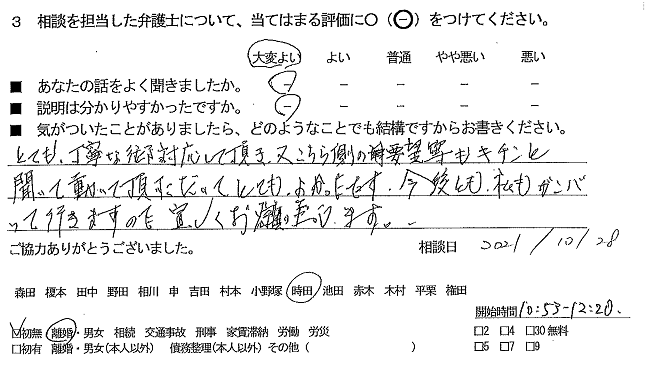 3 相談を担当した弁護士について、当てはまる評価に○（⊖）をつけてください。
大変よい よい 普通 やや悪い 悪い
■ あなたの話をよく聞きましたか。 － － － － －
■ 説明は分かりやすかったですか。 － － － － －
■ 気がついたことがありましたら、どのようなことでも結構ですからお書きください。
とても、丁寧な 対応して頂き、又こちら側の 要望等もキチンと
聞いて動いて頂 とても、よかったです。今後とも、私もガンバ
って行きますので宜しくお願い致します。
ご協力ありがとうございました。 相談日 2021/10/28
森田 榎本 田中 野田 相川 申 吉田 村本 小野塚 時田 池田 赤木 木村 平栗 権田
開始時間 10:53-12:20.
☑初無 離婚・男女 相続 交通事故 刑事 家賃滞納 労働 労災 □2 □4 □30無料
□初有 離婚・男女(本人以外) 債務整理(本人以外) その他 ( ) □5 □7 □9